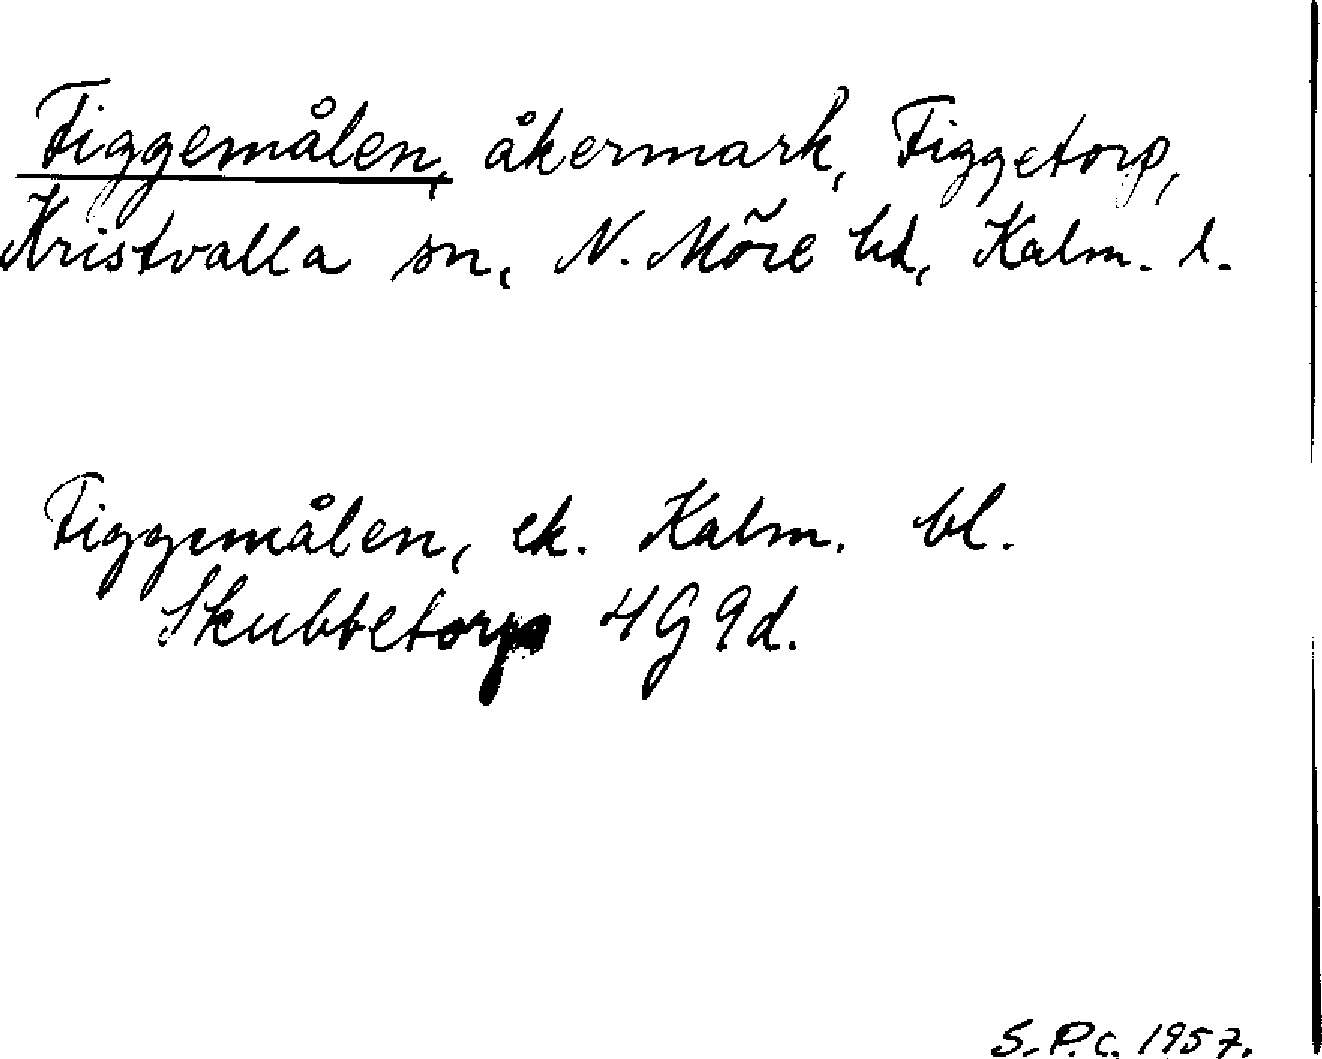 Figgemålen, åkermark, Figgetorp,
Kristvalla sn, N. Möre hd, Kalm. l.
Figgemålen, ek. Kalm. bl.
Skubbetorp 4G 9d.
S.P.C. 1957.